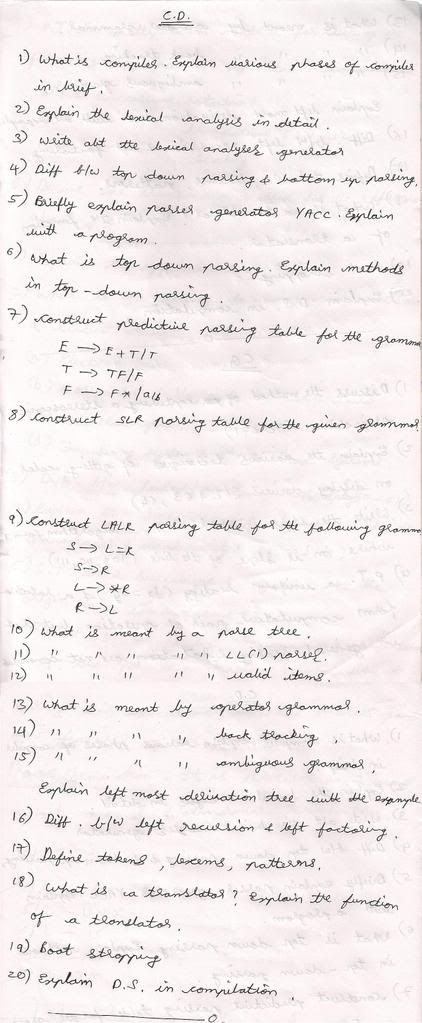 C.D.
1) What is compiler. Explain various phases of compiler
in brief.
2) Explain the lexical analysis in detail.
3) Write abt the lexical analyser generator
4) Diff b/w top down parsing & bottom up parsing.
5) Briefly explain parser generator YACC. Explain
with a program.
6) What is top down parsing. Explain methods
in top-down parsing.
7) Construct predictive parsing table for the grammar
E → E+T/T
T → TF/F
F → F*/a/b
8) Construct SLR parsing table for the given grammar
9) Construct LALR parsing table for the following gramma
S → L=R
S→R
L→*R
R→L
10) What is meant by a parse tree.
11) " " " " " LL(1) parser.
12) " " " " " valid items.
13) What is meant by operator grammar.
14) " " " " back tracking,
15) " " " " ambiguous grammar,
Explain left most derivation tree with the example
16) Diff. b/w left recursion & left factoring.
17) Define tokens, lexems, patterns.
18) What is a translator? Explain the function
of a translator.
19) Boot strapping
20) Explain D.S. in compilation.